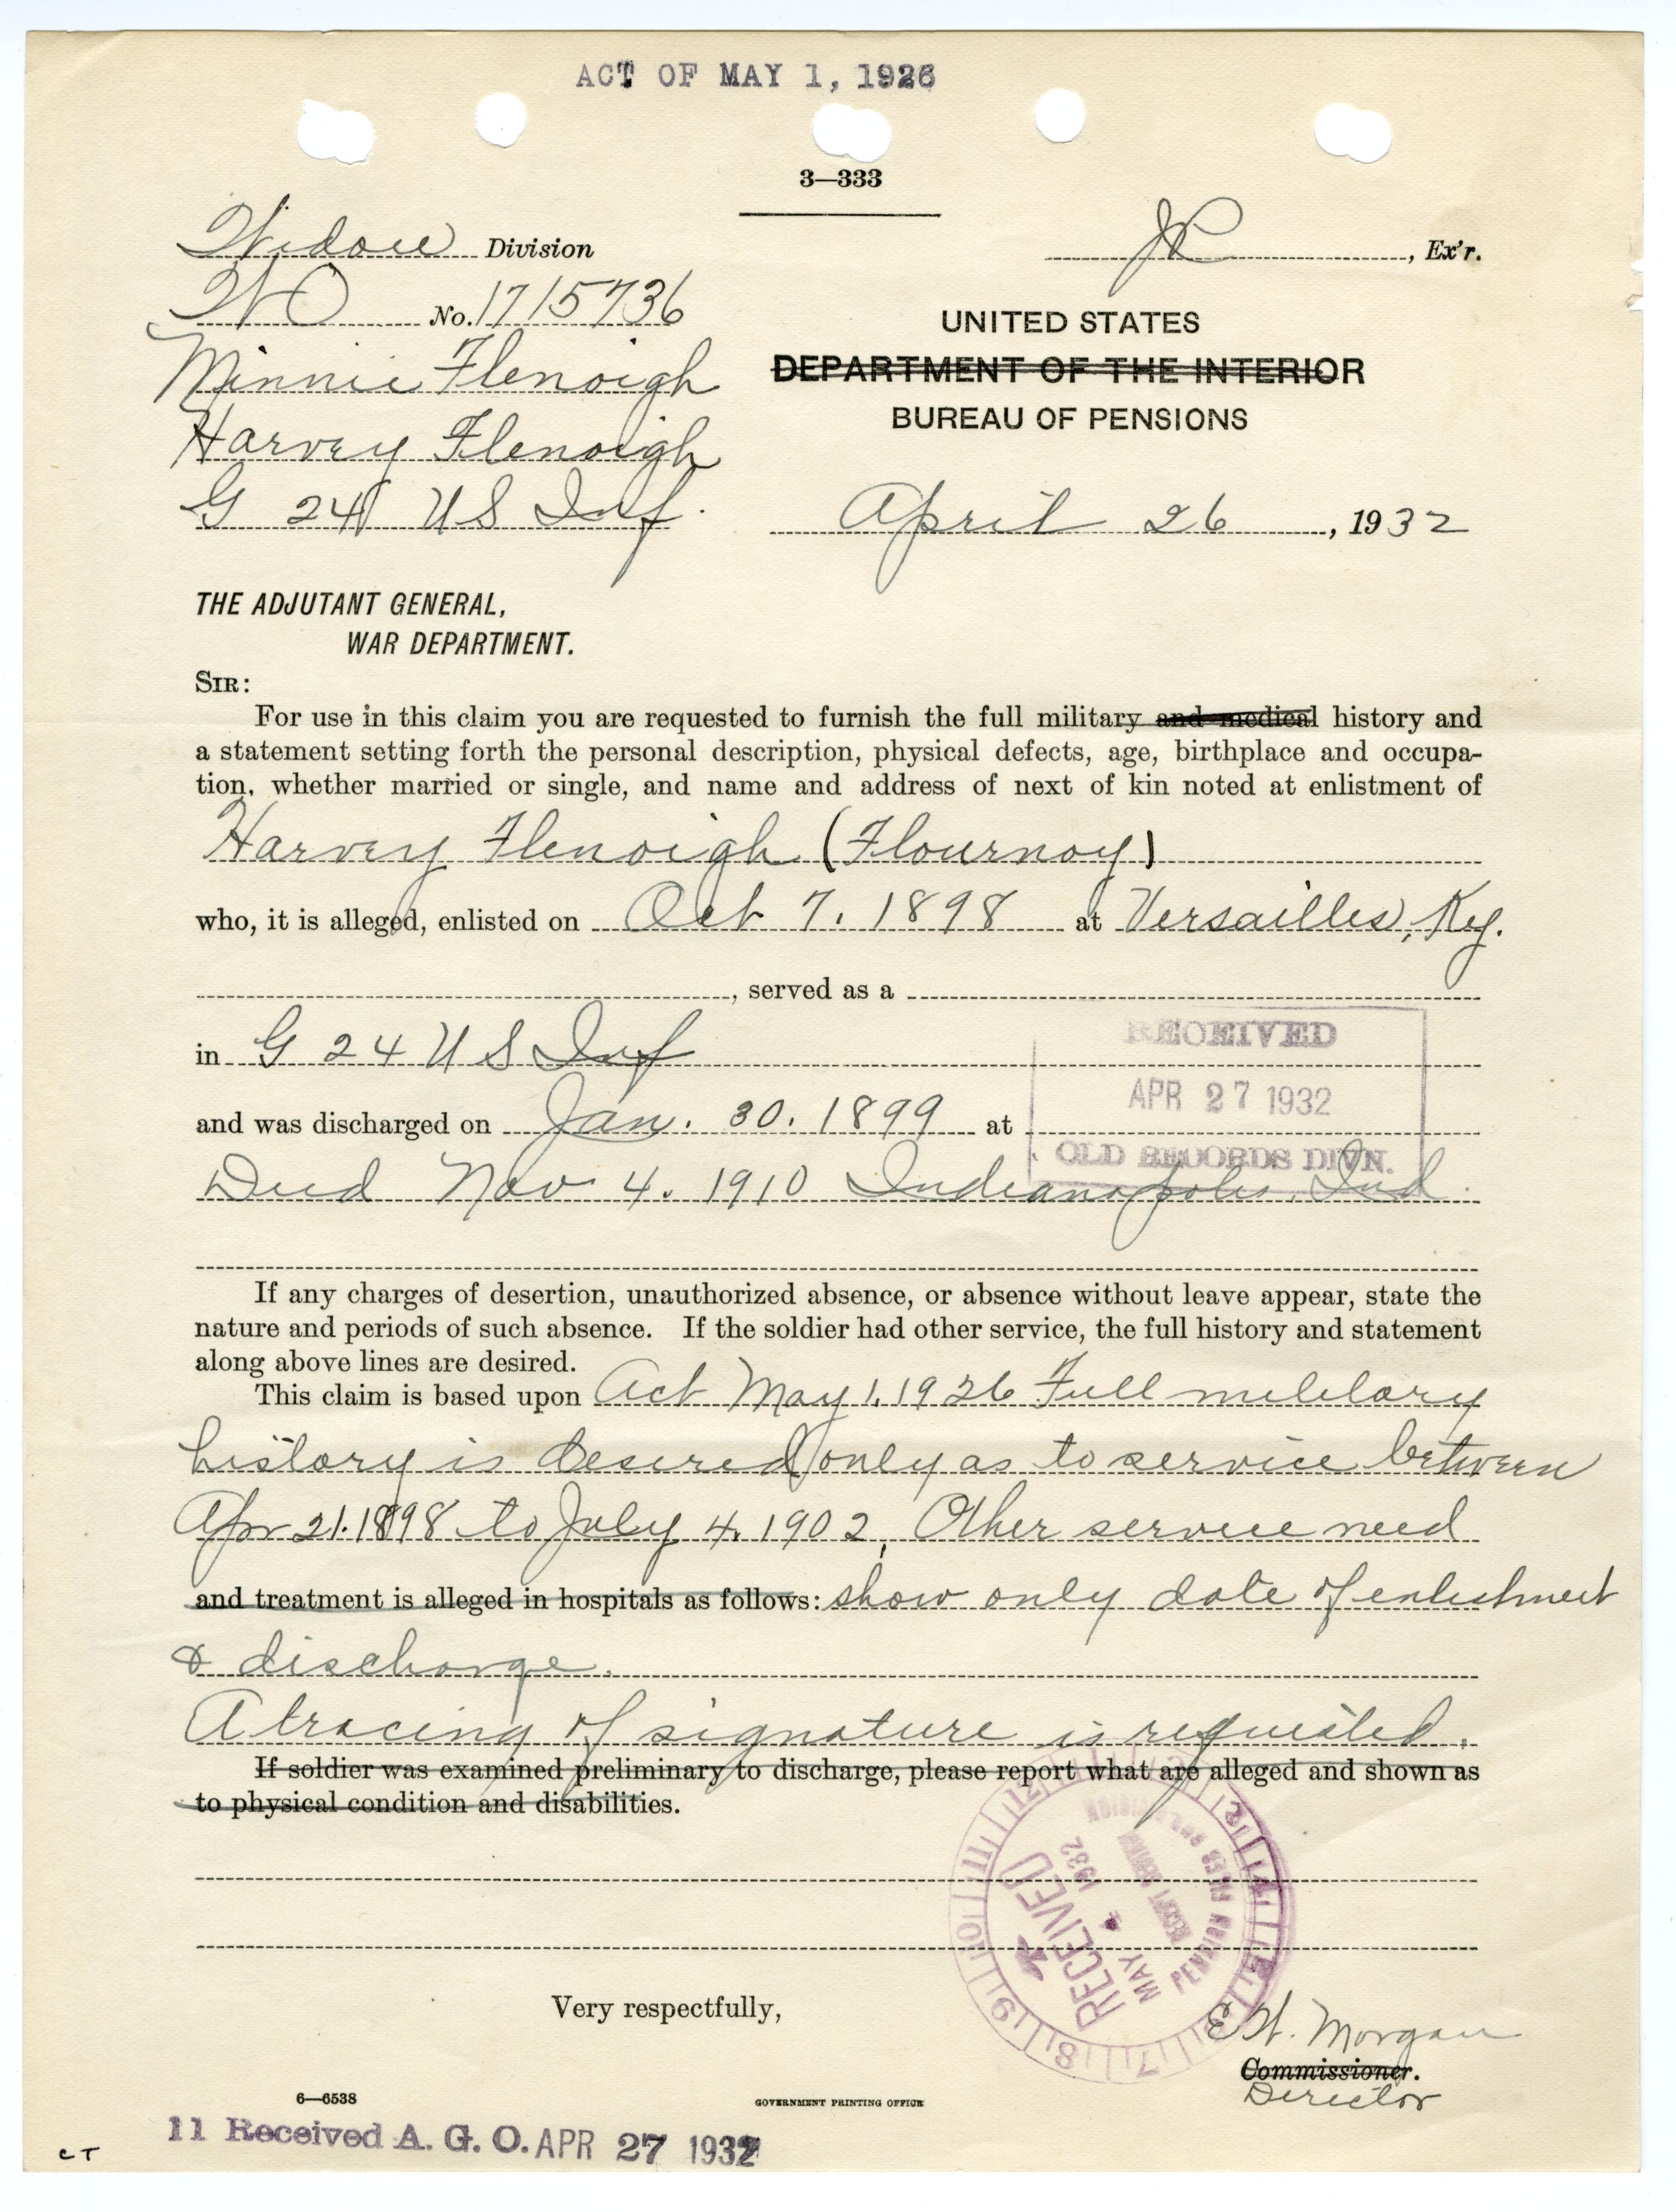 ACT OF MAY 1, 1926
3—333
Widow Division
JR, Ex'r.
WO No. 1715736
Minnie Flenoigh
Harvey Flenoigh
G 24 US Inf.
UNITED STATES
DEPARTMENT OF THE INTERIOR
BUREAU OF PENSIONS
April 26, 1932
THE ADJUTANT GENERAL,
WAR DEPARTMENT.
SIR:
For use in this claim you are requested to furnish the full military and medical history and
a statement setting forth the personal description, physical defects, age, birthplace and occupa-
tion, whether married or single, and name and address of next of kin noted at enlistment of
Harvey Flenoigh (Flournoy)
who, it is alleged, enlisted on Oct 7. 1898 at Versailles, Ky.
, served as a
in G 24 U S Inf
RECEIVED
APR 27 1932
OLD RECORDS DIVN.
and was discharged on Jan. 30. 1899 at
Died Nov 4. 1910 Indianapolis, Ind.
If any charges of desertion, unauthorized absence, or absence without leave appear, state the
nature and periods of such absence. If the soldier had other service, the full history and statement
along above lines are desired.
This claim is based upon Act May 1. 1926 Full military
history is desired only as to service between
Apr 21. 1898 to July 4. 1902, Other service need
and treatment is alleged in hospitals as follows: show only date of enlistment
& discharge.
A tracing of signature is requested.
If soldier was examined preliminary to discharge, please report what are alleged and shown as
to physical condition and disabilities.
RECEIVED
MAY 4 1932
PENSION
Very respectfully,
E W. Morgan
Commissioner.
Director
6—6538
GOVERNMENT PRINTING OFFICE
11 Received A. G. O. APR 27 1932
CT